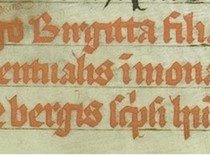 go Birgitta fili
entualis i mona
e bergis sc̄p̄si hu̅